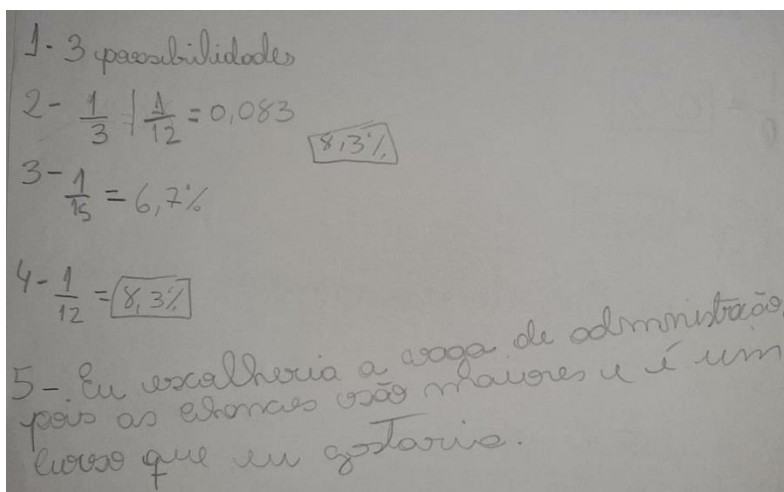 1- 3 possibilidades
2- 1/3 | 1/12 = 0,083
8,3%
3- 1/15 = 6,7%
4- 1/12 = 8,3%
5- Eu escolheria a vaga de administração,
pois as chances são maiores e é um
curso que eu gostaria.